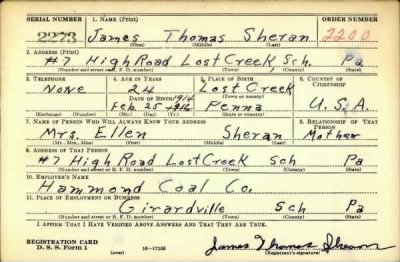 SERIAL NUMBER 1. NAME (Print) ORDER NUMBER
2273 James Thomas Sheran 2200
(First) (Middle) (Last)
2. ADDRESS (Print)
#7 High Road Lost Creek, Sch. Pa
(Number and street or R. F. D. number) (Town) (County) (State)
3. TELEPHONE 4. AGE IN YEARS 5. PLACE OF BIRTH 6. COUNTRY OF CITIZENSHIP
None 24 Lost Creek
DATE OF BIRTH (Town or county)
1914
Feb. 25 1916 Penna U.S.A.
(Exchange) (Number) (Mo.) (Day) (Yr.) (State or country)
7. NAME OF PERSON WHO WILL ALWAYS KNOW YOUR ADDRESS 8. RELATIONSHIP OF THAT PERSON
Mrs. Ellen Sheran Mother
(Mr., Mrs., Miss) (First) (Middle) (Last)
9. ADDRESS OF THAT PERSON
#7 High Road Lost Creek Sch Pa
(Number and street or R. F. D. number) (Town) (County) (State)
10. EMPLOYER'S NAME
Hammond Coal Co.
11. PLACE OF EMPLOYMENT OR BUSINESS
Girardville Sch Pa
(Number and street or R. F. D. number) (Town) (County) (State)
I AFFIRM THAT I HAVE VERIFIED ABOVE ANSWERS AND THAT THEY ARE TRUE.
REGISTRATION CARD
D. S. S. Form 1 16-17105 James Thomas Sheran
(Registrant's signature)